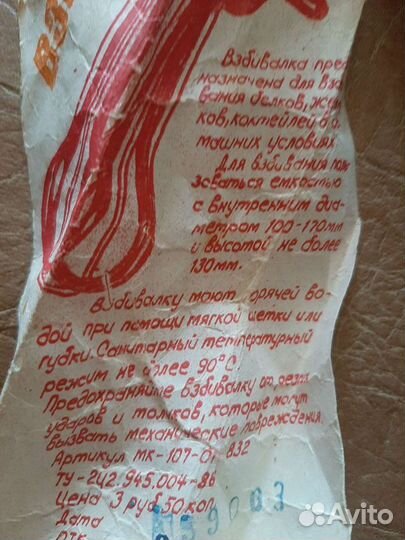 Взбивалка пред
назначена для взби
вания белков, желт
ков, коктейлей в до
машних условиях.
Для взбивания поль
зоваться емкостью
с внутренним диа-
метром 100-170мм
и высотой не более
130мм.
Взбивалку моют горячей во-
дой при помощи мягкой щетки или
губки. Санитарный температурный
режим не более 90°С.
Предохраняйте взбивалку от резких
ударов и толчков, которые могут
вызвать механические повреждения.
Артикул МК-107-01 В32
ТУ-242.945.004-86
Цена 3 руб.50 коп.
Дата
ОТК
Avito